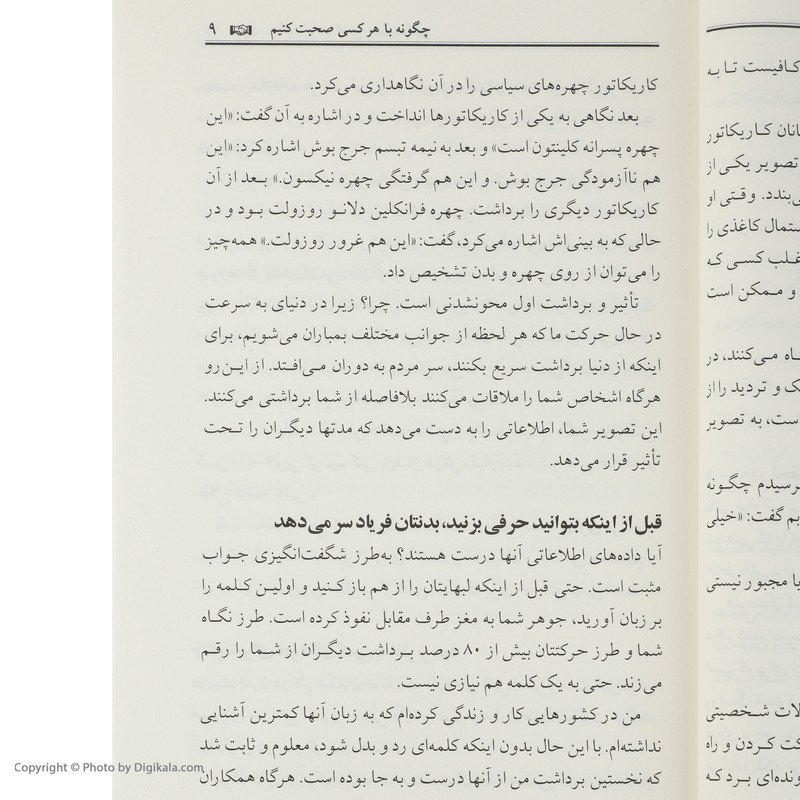 چگونه با هر کسی صحبت کنیم ۹
کاریکاتور چهره‌های سیاسی را در آن نگاهداری می‌کرد.
بعد نگاهی به یکی از کاریکاتورها انداخت و در اشاره به آن گفت: «این
چهره پسرانه کلینتون است» و بعد به نیمه تبسم جرج بوش اشاره کرد: «این
هم ناآزمودگی جرج بوش. و این هم گرفتگی چهره نیکسون.» بعد از آن
کاریکاتور دیگری را برداشت. چهره فرانکلین دلانو روزولت بود و در
حالی که به بینی‌اش اشاره می‌کرد، گفت: «این هم غرور روزولت.» همه‌چیز
را می‌توان از روی چهره و بدن تشخیص داد.
تأثیر و برداشت اول محونشدنی است. چرا؟ زیرا در دنیای به سرعت
در حال حرکت ما که هر لحظه از جوانب مختلف بمباران می‌شویم، برای
اینکه از دنیا برداشت سریع بکنند، سر مردم به دوران می‌افتد. از این‌رو
هرگاه اشخاص شما را ملاقات می‌کنند بلافاصله از شما برداشتی می‌کنند.
این تصویر شما، اطلاعاتی را به دست می‌دهد که مدتها دیگران را تحت
تأثیر قرار می‌دهد.
قبل از اینکه بتوانید حرفی بزنید، بدنتان فریاد سر می‌دهد
آیا داده‌های اطلاعاتی آنها درست هستند؟ به‌طرز شگفت‌انگیزی جواب
مثبت است. حتی قبل از اینکه لبهایتان را از هم باز کنید و اولین کلمه را
بر زبان آورید، جوهر شما به مغز طرف مقابل نفوذ کرده است. طرز نگاه
شما و طرز حرکتتان بیش از ۸۰ درصد برداشت دیگران از شما را رقم
می‌زند. حتی به یک کلمه هم نیازی نیست.
من در کشورهایی کار و زندگی کرده‌ام که به زبان آنها کمترین آشنایی
نداشته‌ام. با این حال بدون اینکه کلمه‌ای رد و بدل شود، معلوم و ثابت شد
که نخستین برداشت من از آنها درست و به جا بوده است. هرگاه همکاران
کافیست تا به
کاریکاتور
تصویر یکی از
وقتی او
کاغذی را
کسی که
و ممکن است
می‌کنند، در
و تردید را از
به تصویر
چگونه
گفت: «خیلی
مجبور نیستی
شخصیتی
کردن و راه
برد که
Copyright © Photo by Digikala.com